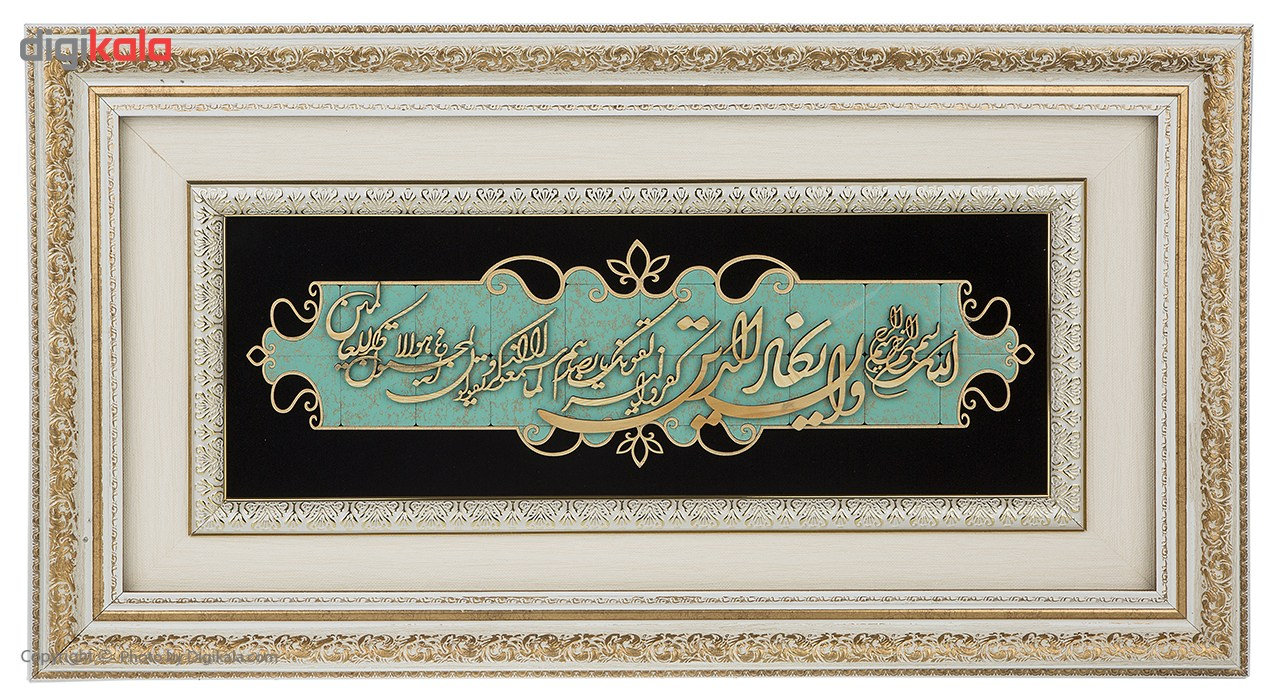 digikala
بسم الله الرحمن الرحیم
وان یکاد الذین کفروا لیزلقونک بابصارهم لما سمعوا الذکر و یقولون انه لمجنون و ما هو الا ذکر للعالمین
Copyright © Photo by Digikala.com